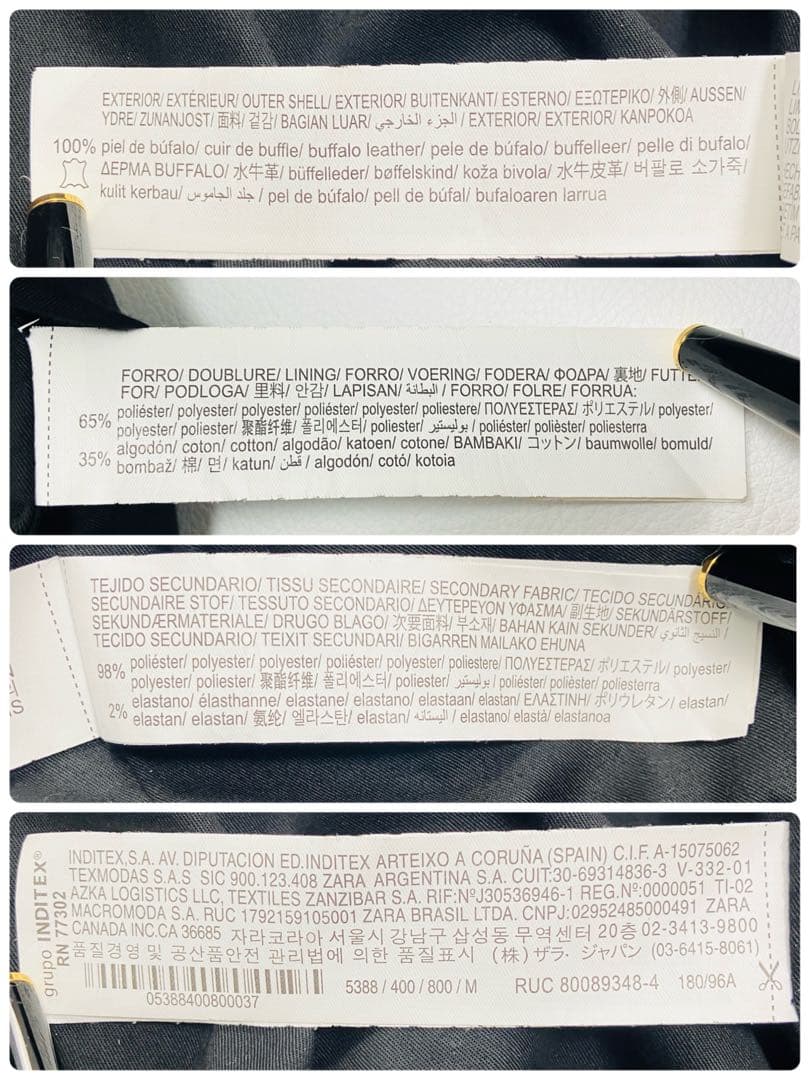 EXTERIOR/ EXTÉRIEUR/ OUTER SHELL/ EXTERIOR/ BUITENKANT/ ESTERNO/ ΕΞΩΤΕΡΙΚΟ/ 外側/ AUSSEN/
YDRE/ ZUNANJOST/ 面料/ 겉감/ BAGIAN LUAR/ الجزء الخارجي / EXTERIOR/ EXTERIOR/ KANPOKOA
100% piel de búfalo/ cuir de buffle/ buffalo leather/ pele de búfalo/ buffelleer/ pelle di bufalo/
ΔΕΡΜΑ BUFFALO/ 水牛革/ büffelleder/ bøffelskind/ koža bivola/ 水牛皮革/ 버팔로 소가죽/
kulit kerbau/ جلد الجاموس / pel de búfalo/ pell de búfal/ bufaloaren larrua
FORRO/ DOUBLURE/ LINING/ FORRO/ VOERING/ FODERA/ ΦΟΔΡΑ/ 裏地/
FOR/ PODLOGA/ 里料/ 안감/ LAPISAN/ البطانة / FORRO/ FOLRE/ FORRUA:
65% poliéster/ polyester/ polyester/ poliéster/ polyester/ poliestere/ ΠΟΛΥΕΣΤΕΡΑΣ/ ポリエステル/ polyester/
polyester/ poliester/ 聚酯纤维/ 폴리에스터/ poliester/ بوليستير / poliéster/ polièster/ poliesterra
35% algodón/ coton/ cotton/ algodão/ katoen/ cotone/ BAMBAKI/ コットン/ baumwolle/ bomuld/
bombaž/ 棉/ 면/ katun/ قطن / algodón/ cotó/ kotoia
TEJIDO SECUNDARIO/ TISSU SECONDAIRE/ SECONDARY FABRIC/ TECIDO SECUNDÁRIO/
SECUNDAIRE STOF/ TESSUTO SECONDARIO/ ΔΕΥΤΕΡΕΥΟΝ ΥΦΑΣΜΑ/ 副生地/ SEKUNDÄRSTOFF/
SEKUNDÆRMATERIALE/ DRUGO BLAGO/ 次要面料/ 부소재/ BAHAN KAIN SEKUNDER/ النسيج الثانوي /
TECIDO SECUNDARIO/ TEIXIT SECUNDARI/ BIGARREN MAILAKO EHUNA
98% poliéster/ polyester/ polyester/ poliéster/ polyester/ poliestere/ ΠΟΛΥΕΣΤΕΡΑΣ/ ポリエステル/ polyester/
polyester/ poliester/ 聚酯纤维/ 폴리에스터/ poliester/ بوليستير / poliéster/ polièster/ poliesterra
2% elastano/ élasthanne/ elastane/ elastano/ elastaan/ elastan/ ΕΛΑΣΤΙΝΗ/ ポリウレタン/ elastan/
elastan/ elastan/ 氨纶/ 엘라스탄/ elastan/ اليستانه / elastano/ elastà/ elastanoa
grupo INDITEX®
RN 77302
INDITEX,S.A. AV. DIPUTACION ED.INDITEX ARTEIXO A CORUÑA (SPAIN) C.I.F. A-15075062
TEXMODAS S.A.S SIC 900.123.408 ZARA ARGENTINA S.A. CUIT:30-69314836-3 V-332-01
AZKA LOGISTICS LLC, TEXTILES ZANZIBAR S.A. RIF:NºJ30536946-1 REG.Nº:0000051 TI-02
MACROMODA S.A. RUC 1792159105001 ZARA BRASIL LTDA. CNPJ:02952485000491 ZARA
CANADA INC.CA 36685 자라코리아 서울시 강남구 삼성동 무역센터 20층 02-3413-9800
품질경영 및 공산품안전 관리법에 의한 품질표시 (株) ザラ・ジャパン (03-6415-8061)
05388400800037
5388 / 400 / 800 / M
RUC 80089348-4
180/96A